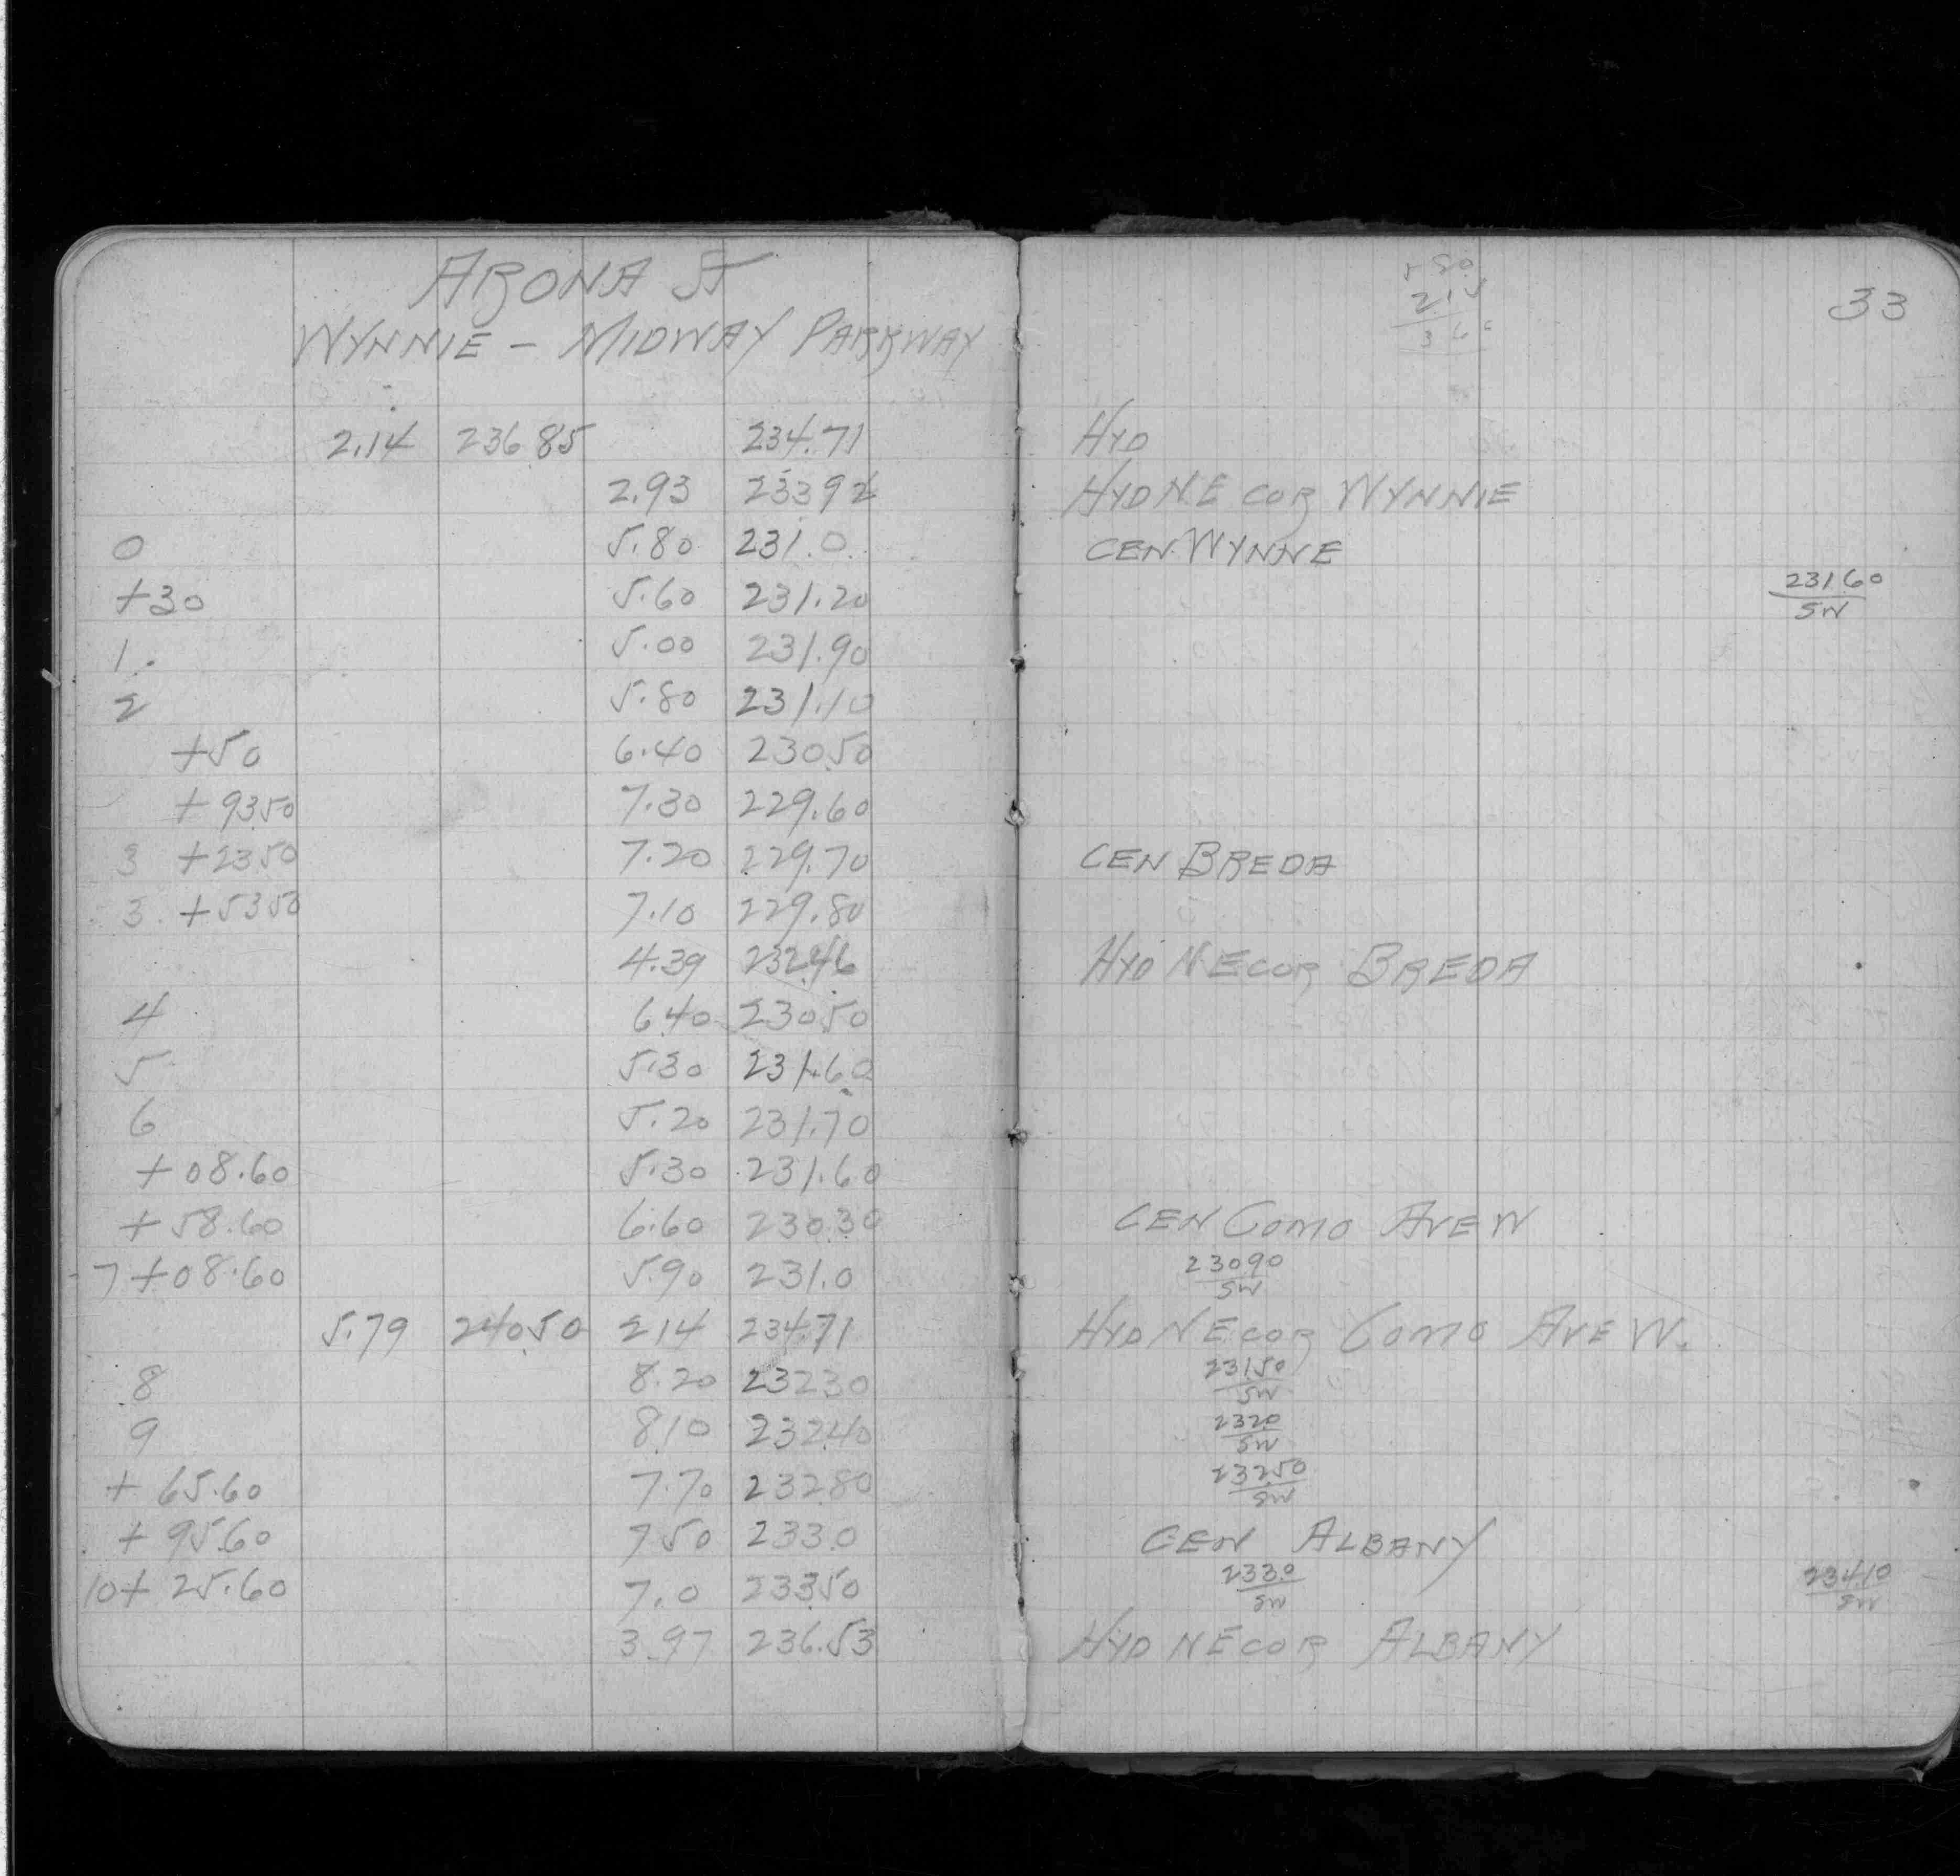 ARONA ST
WYNNIE - MIDWAY PARKWAY
33
2.14 236.85 234.71 HYD
2.93 233.92 HYD N.E COR WYNNIE
0 5.80 231.0 CEN. WYNNE
+30 5.60 231.20 231.60 SW
1. 5.00 231.90
2 5.80 231.10
+50 6.40 230.50
+93.50 7.30 229.60
3 +23.50 7.20 229.70 CEN BREDA
3 +53.50 7.10 229.80
4.39 232.46 HYD NE COR BREDA
4 6.40 230.50
5 5.30 231.60
6 5.20 231.70
+08.60 5.30 231.60
+58.60 6.60 230.30 CEN COMO AVE W
7+08.60 5.90 231.0 230.90 SW
5.79 240.50 2.14 234.71 HYD NE COR COMO AVE W.
8 8.20 232.30 231.50 SW
9 8.10 232.40 232.0 SW
+65.60 7.70 232.80 232.50 SW
+95.60 7.50 233.0 CEN ALBANY
10+25.60 7.0 233.50 233.0 SW 234.10 SW
3.97 236.53 HYD NE COR ALBANY